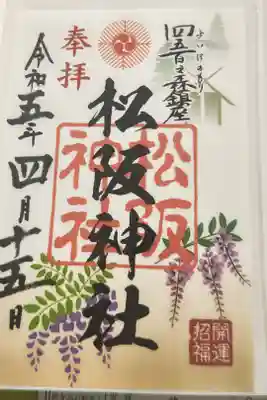 四五百之森鎮座
よいほのもり
奉拝
松阪神社
松阪
神社
令和五年四月十五日
開運
招福